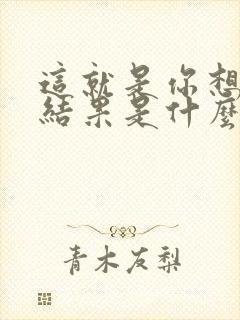 這就是你想
結果是什麼
青木友梨